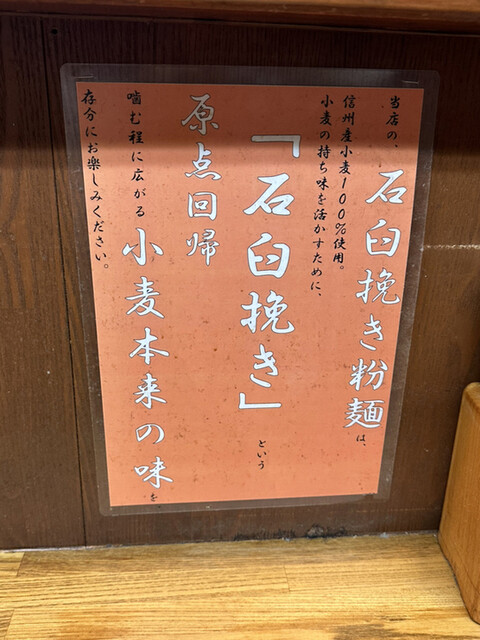 当店の、石臼挽き粉麺は、
信州産小麦100%使用。
小麦の持ち味を活かすために、
「石臼挽き」という
原点回帰
噛む程に広がる小麦本来の味を
存分にお楽しみください。